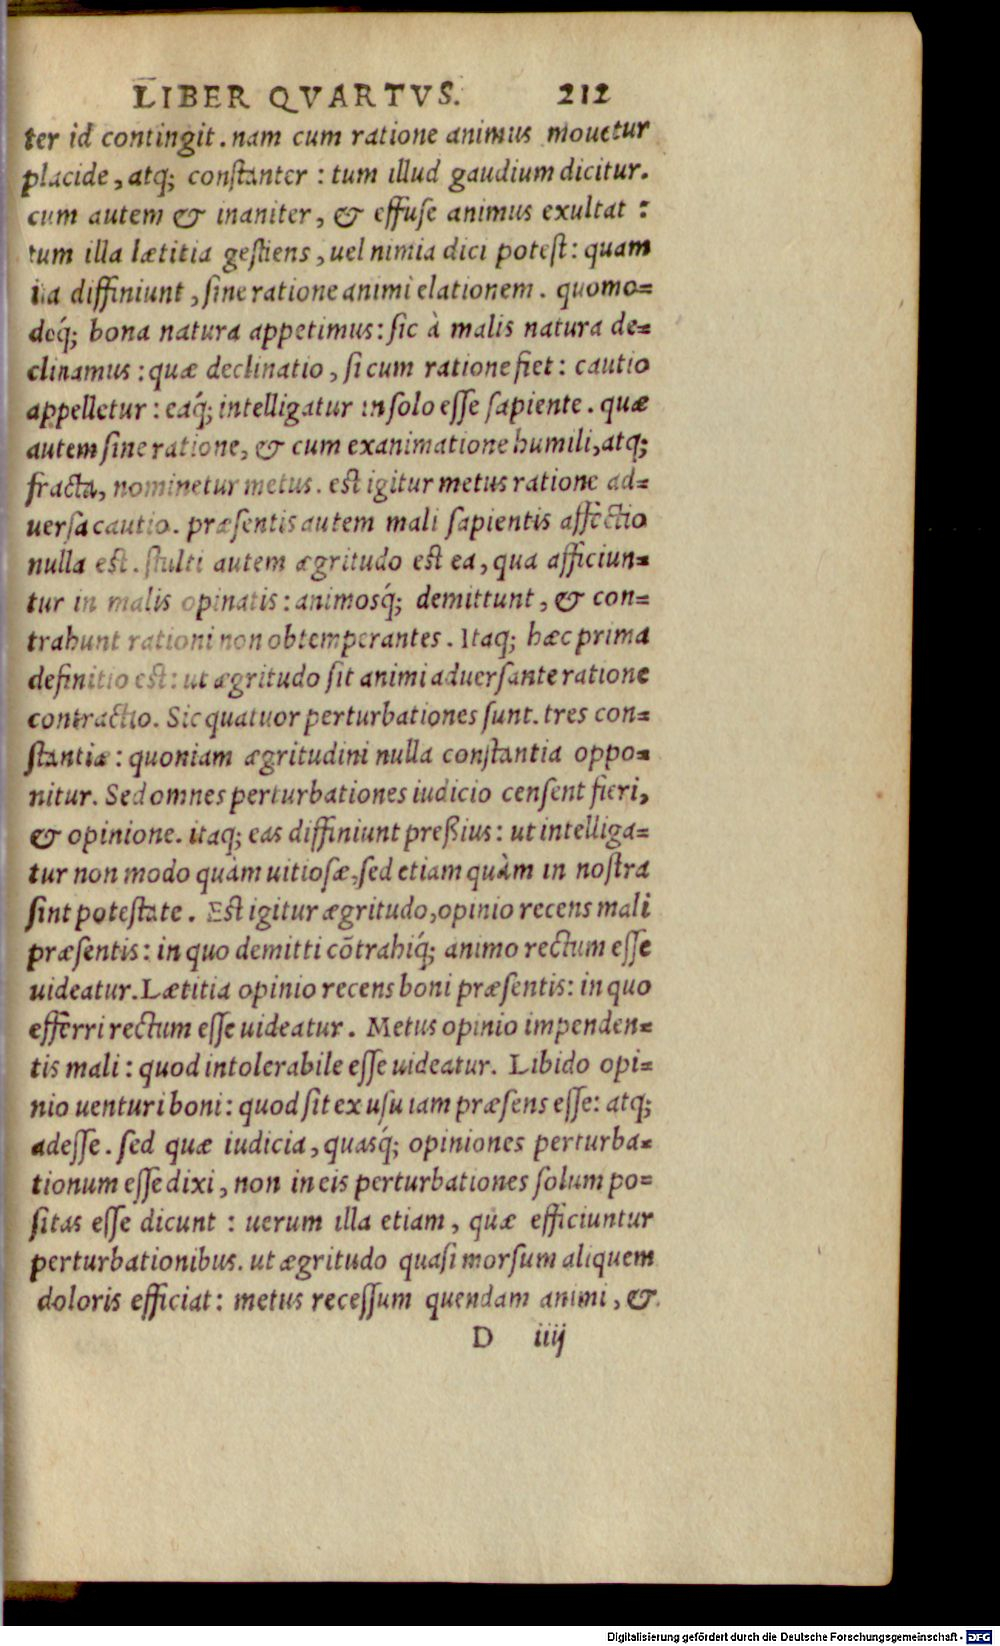 LIBER QVARTVS. 212
ter id contingit. nam cum ratione animus mouetur
placide, atq; constanter : tum illud gaudium dicitur.
cum autem & inaniter, & effuse animus exultat :
tum illa lætitia gestiens, uel nimia dici potest: quam
ita diffiniunt, sine ratione animi elationem. quomo=
doq́; bona natura appetimus: sic à malis natura de=
clinamus : quæ declinatio, si cum ratione fiet: cautio
appelletur : eaq́; intelligatur in solo esse sapiente. quæ
autem sine ratione, & cum exanimatione humili, atq;
fracta, nominetur metus. est igitur metus ratione ad=
uersa cautio. præsentis autem mali sapientis affectio
nulla est. stulti autem ægritudo est ea, qua afficiun=
tur in malis opinatis: animosq́; demittunt, & con=
trahunt rationi non obtemperantes. Itaq; hæc prima
definitio est: ut ægritudo sit animi aduersante ratione
contractio. Sic quatuor perturbationes sunt. tres con=
stantiæ: quoniam ægritudini nulla constantia oppo=
nitur. Sed omnes perturbationes iudicio censent fieri,
& opinione. itaq; eas diffiniunt preßius: ut intelliga=
tur non modo quàm uitiosæ, sed etiam quàm in nostra
sint potestate. Est igitur ægritudo, opinio recens mali
præsentis: in quo demitti cõtrahiq́; animo rectum esse
uideatur. Lætitia opinio recens boni præsentis: in quo
efferri rectum esse uideatur. Metus opinio impenden=
tis mali: quod intolerabile esse uideatur. Libido opi=
nio uenturi boni: quod sit ex usu iam præsens esse: atq;
adesse. sed quæ iudicia, quasq́; opiniones perturba=
tionum esse dixi, non in eis perturbationes solum po=
sitas esse dicunt : uerum illa etiam, quæ efficiuntur
perturbationibus. ut ægritudo quasi morsum aliquem
doloris efficiat: metus recessum quendam animi, &
D iiij
Digitalisierung gefördert durch die Deutsche Forschungsgemeinschaft - DFG